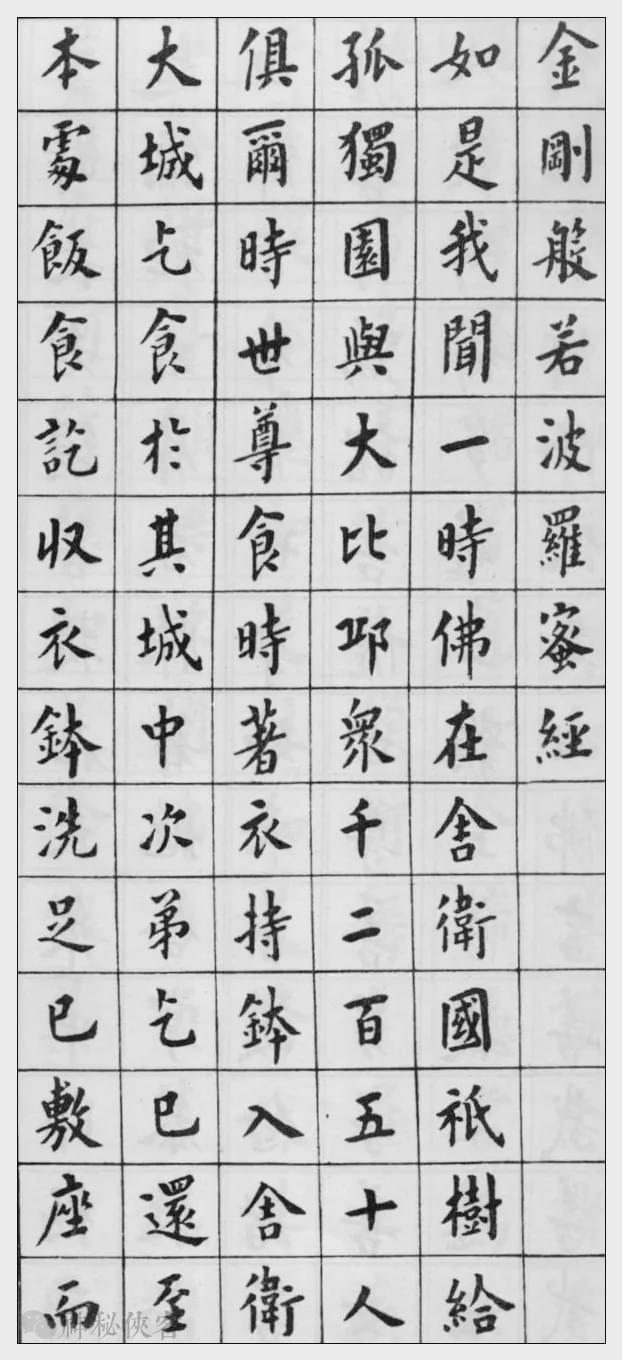 金剛般若波羅蜜經
如是我聞一時佛在舍衛國祇樹給
孤獨園與大比邱眾千二百五十人
俱爾時世尊食時著衣持鉢入舍衛
大城乞食於其城中次弟乞已還至
本處飯食訖收衣鉢洗足已敷座而
神秘俠客